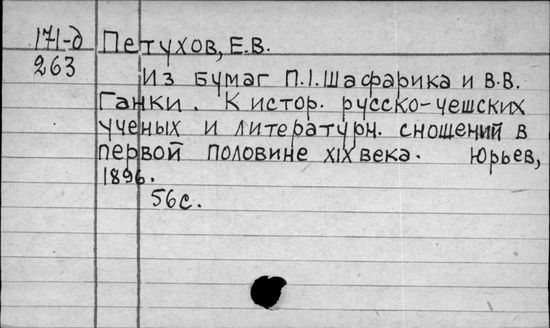 171-д Петухов, Е.В.
263
Из бумаг П.І.Шафарика и В.В.
Ганки. К истор. русско-чешских
ученых и литературн. сношений в
первой половине XIX века. Юрьев,
1896.
56с.